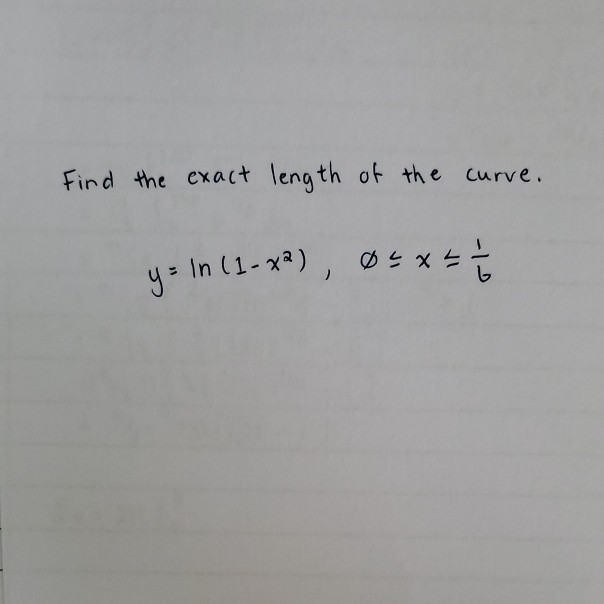 Find the exact length of the curve.
y = ln (1 - x²) , 0 ≤ x ≤ 1/6